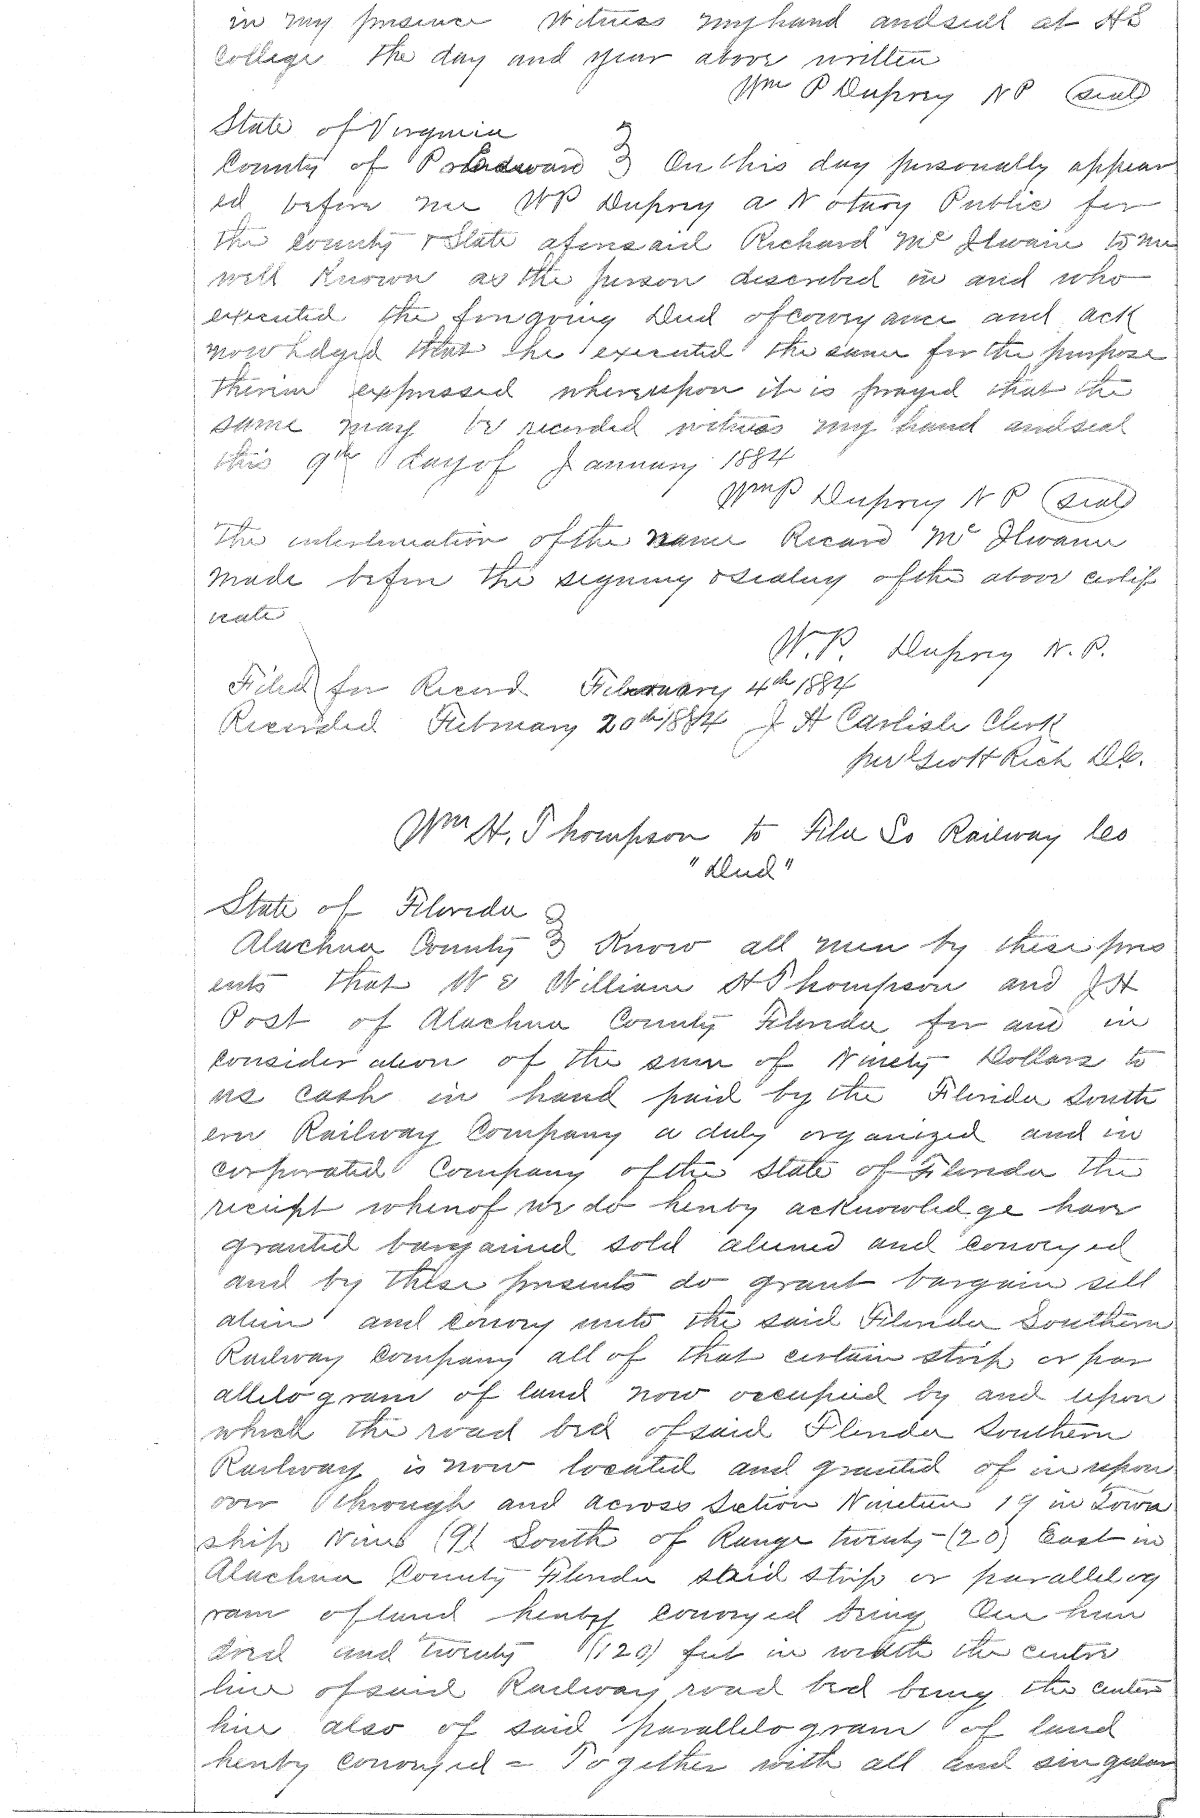 in my presence Witness my hand and seal at H S
College the day and year above written
Wm P Duprey N P (seal)
State of Virginia
County of Pr Edward } On this day personally appear
ed before me W P Duprey a Notary Public for
the county & State aforesaid Richard Mc Ilwain to me
well Known as the person described in and who
executed the foregoing Deed of conveyance and ack
nowledged that he executed the same for the purpose
therein expressed whereupon it is prayed that the
same may be recorded witness my hand and seal
this 9th day of January 1884
Wm P Duprey N P (seal)
The interlineation of the name Ricard Mc Ilwain
made before the signing & sealing of the above certifi
cate
W. P. Duprey N. P.
Filed for Record February 4th 1884
Recorded February 20th 1884 J H Carlisle Clerk
per Rich D.C.
Wm H. Thompson to Fla So Railway Co
"Deed"
State of Florida }
Alachua County } Know all men by these pres
ents that We William H Thompson and J H
Post of Alachua County Florida for and in
consideration of the sum of Ninety Dollars to
us cash in hand paid by the Florida South
ern Railway Company a duly organized and in
corporated Company of the State of Florida the
receipt whereof we do hereby acknowledge have
granted bargained sold aliened and conveyed
and by these presents do grant bargain sell
alien and convey unto the said Florida Southern
Railway Company all of that certain strip or par
allelogram of land now occupied by and upon
which the road bed of said Florida Southern
Railway is now located and granted of in upon
over through and across Section Nineteen 19 in Town
ship Nine (9) South of Range twenty (20) East in
Alachua County Florida said strip or parallelog
ram of land hereby conveyed being One hun
dred and twenty (120) feet in width the centre
line of said Railway road bed being the centre
line also of said parallelogram of land
hereby conveyed = Together with all and singular